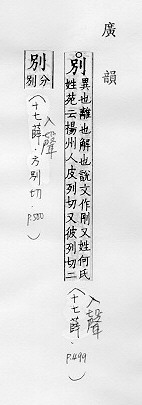 廣韻
別
異也離也解也說文作𠛰又姓何氏
姓苑云楊州人皮列切又彼列切二
入聲
(十七薛.p.499)
別
分別
入聲
(十七薛.方別切.p.500)